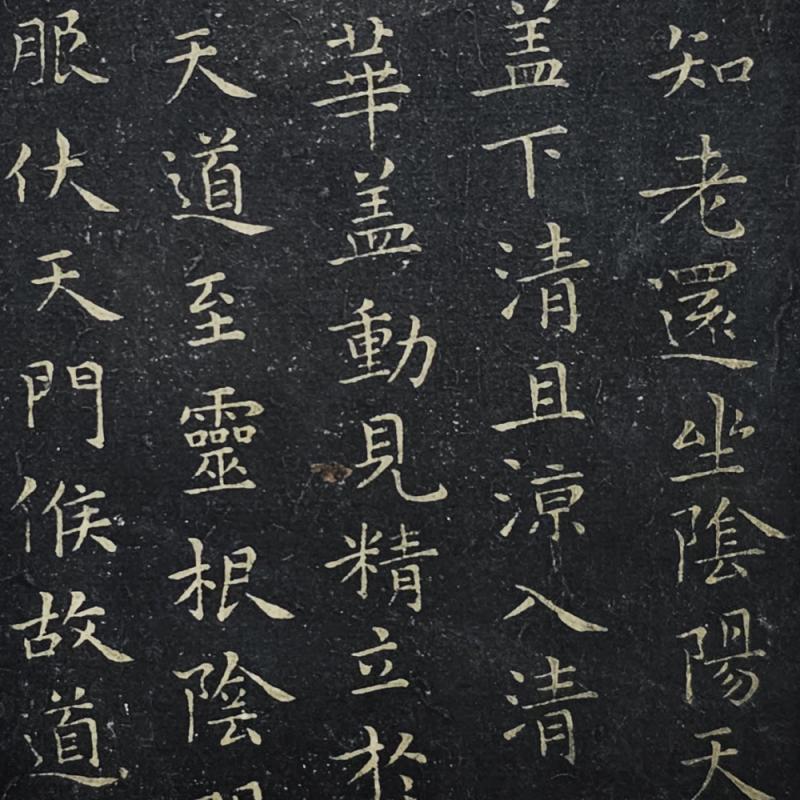 知老還坐陰陽天
盖下清且涼入清
華盖動見精立於
天道至靈根陰
服伏天門候故道